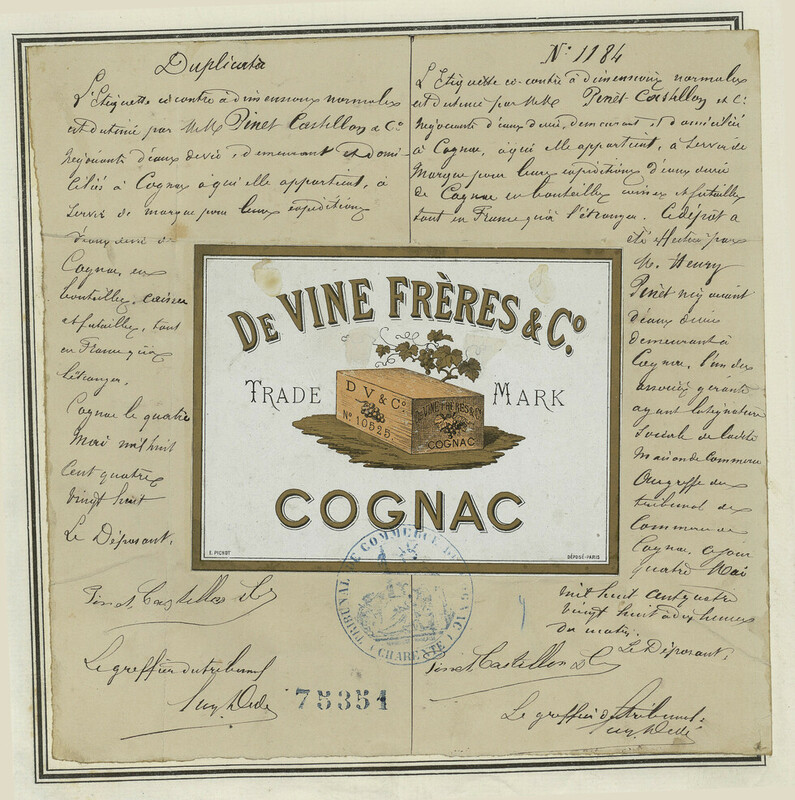 Duplicata
L'Etiquette ci-contre à dimensions normales
est destinée par MM. Pinet Castillon & Cie
négociants d'eaux de vie, demeurant et domi-
ciliés à Cognac à qui elle appartient, à
servir de marque pour leurs expéditions
d'eaux de vie de
Cognac en
bouteilles, caisses
et futailles, tant
en France qu'à
l'étranger.
Cognac le quatre
Mai mil huit
cent quatre
vingt huit
Le Déposant,
Pinet Castillon & Cie
Le greffier du tribunal
75354
N° 1184
L'Etiquette ci-contre à dimensions normales
est destinée par MM. Pinet-Castillon et Cie
négociants d'eaux de vie, demeurant et domiciliés
à Cognac, à qui elle appartient, à servir de
Marque pour leurs expéditions d'eaux de vie
de Cognac en bouteilles caisses et futailles
tant en France qu'à l'étranger. Ce dépôt a
été effectué par
M. Henry
Pinet négociant
d'eaux de vie
demeurant à
Cognac, l'un des
associés gérants
ayant la signature
sociale de ladite
Maison de Commerce
Au greffe du
tribunal de
Commerce de
Cognac, ce jour
quatre Mai
mil huit cent quatre
vingt huit à dix heures
du matin.
Le Déposant,
Pinet Castillon & Cie
Le greffier du tribunal.
DE VINE FRÈRES & Co.
TRADE MARK
D V & Co
No 10525.
DE VINE FRÈRES & Co
COGNAC
COGNAC
E. PICHOT
DÉPOSÉ-PARIS
TRIBUNAL DE COMMERCE DE COGNAC
(CHARENTE)